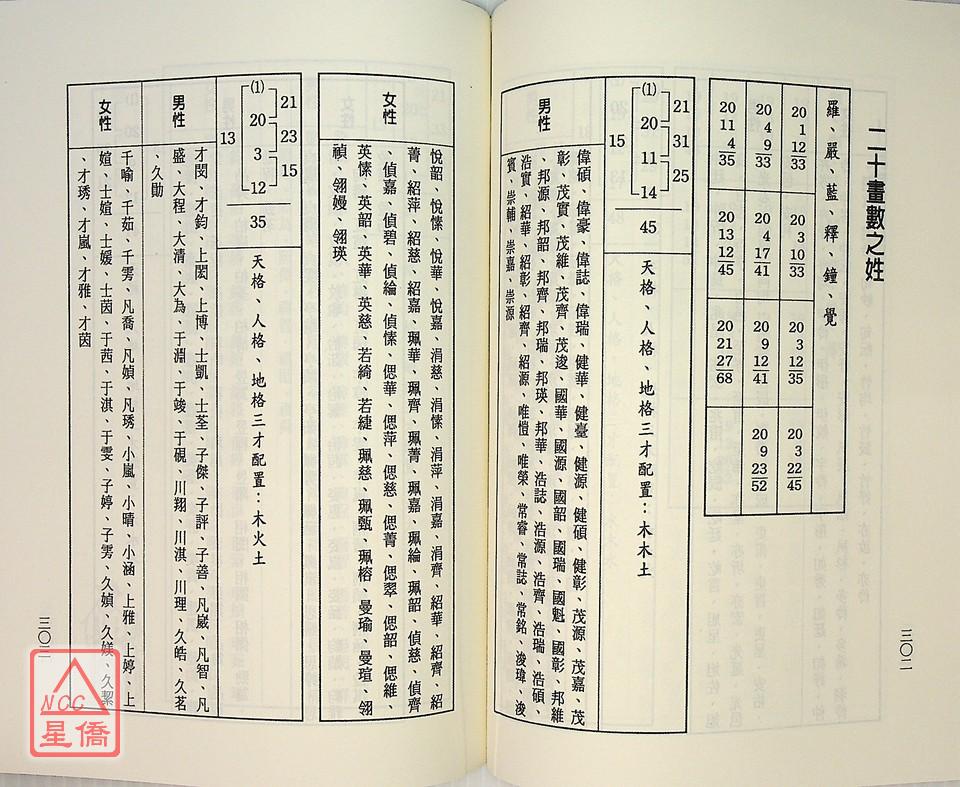 二十畫數之姓
羅、嚴、藍、釋、鐘、覺
20 1 12 33
20 3 10 33
20 3 12 35
20 3 22 45
20 4 9 33
20 4 17 41
20 9 12 41
20 9 23 52
20 11 4 35
20 13 12 45
20 21 27 68
(1) 20 11 14
21 31 25
15
45
天格、人格、地格三才配置：木木土
男性
偉碩、偉豪、偉誌、偉瑞、健華、健臺、健源、健碩、健彰、茂源、茂嘉、茂
彰、茂實、茂維、茂齊、茂逡、國華、國源、國韶、國瑞、國魁、國彰、邦維
、邦源、邦韶、邦齊、邦瑞、邦瑛、邦華、浩誌、浩源、浩齊、浩瑞、浩碩、
浩實、紹華、紹彰、紹齊、紹源、唯愷、唯榮、常睿、常誌、常銘、浚瑋、浚
賓、崇輔、崇嘉、崇源
三〇二
女性
悅韶、悅愫、悅華、悅嘉、涓慈、涓愫、涓萍、涓嘉、涓齊、紹華、紹齊、紹
菁、紹萍、紹慈、紹嘉、珮華、珮齊、珮菁、珮嘉、珮綸、珮韶、偵慈、偵齊
、偵嘉、偵碧、偵綸、偵愫、偲華、偲萍、偲慈、偲菁、偲翠、偲韶、偲維、
英愫、英韶、英華、英慈、若綺、若緁、珮慈、珮甄、珮榕、曼瑜、曼瑄、翎
禎、翎嫚、翎瑛
(1) 20 3 12
21 23 15
13
35
天格、人格、地格三才配置：木火土
男性
才閔、才鈞、上閎、上博、士凱、士荃、子傑、子評、子善、凡崴、凡智、凡
盛、大程、大清、大為、于淵、于竣、于硯、川翔、川淇、川理、久皓、久茗
、久勛
女性
千喻、千茹、千雱、凡喬、凡媜、凡琇、小嵐、小晴、小涵、上雅、上婷、上
媗、士媗、士媛、士茵、于茜、于淇、于雯、子婷、子雱、久媜、久媄、久絜
、才琇、才嵐、才雅、才茵
三〇三
NCC
星僑